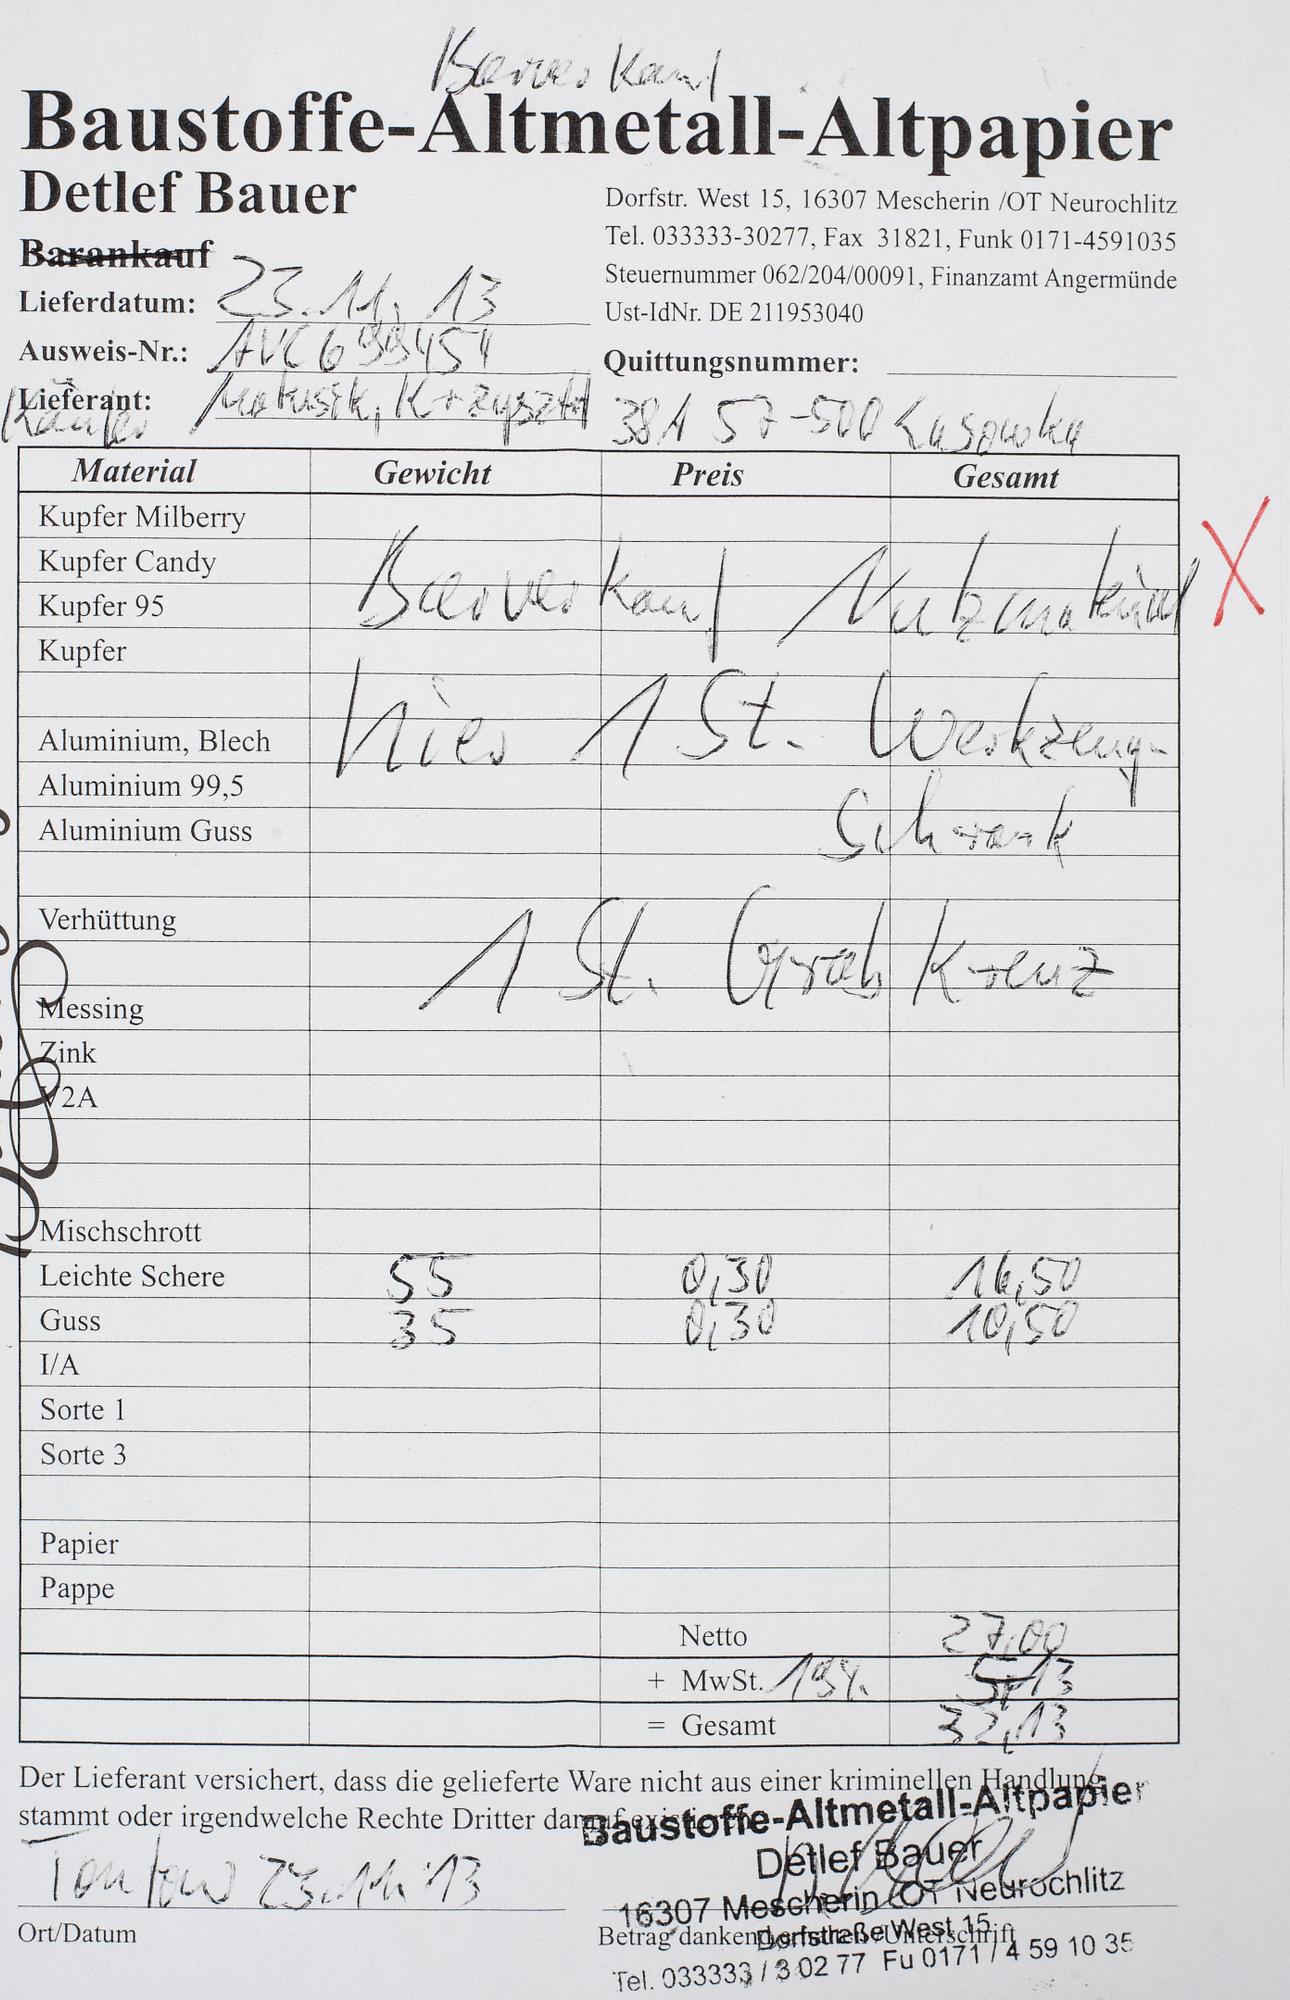 Barverkauf
Baustoffe-Altmetall-Altpapier
Detlef Bauer
Dorfstr. West 15, 16307 Mescherin /OT Neurochlitz
Tel. 033333-30277, Fax 31821, Funk 0171-4591035
Steuernummer 062/204/00091, Finanzamt Angermünde
Ust-IdNr. DE 211953040
Barankauf
Lieferdatum: 23.11.13
Ausweis-Nr.: AVC699454
Quittungsnummer:
Lieferant: Matusik, Krzysztof 38A 57-500
Käufer
Material Gewicht Preis Gesamt
Kupfer Milberry
Kupfer Candy
Barverkauf Nutzmaterial X
Kupfer 95
Kupfer
hier 1 St. Werkzeug-
Aluminium, Blech
Aluminium 99,5
Schrank
Aluminium Guss
Verhüttung
1 St. Grabkreuz
Messing
Zink
V2A
Mischschrott
Leichte Schere 55 0,30 16,50
Guss 35 0,30 10,50
I/A
Sorte 1
Sorte 3
Papier
Pappe
Netto 27,00
+ MwSt. 19%. 5,13
= Gesamt 32,13
Der Lieferant versichert, dass die gelieferte Ware nicht aus einer kriminellen Handlung
stammt oder irgendwelche Rechte Dritter darauf
Baustoffe-Altmetall-Altpapier
Detlef Bauer
16307 Mescherin OT Neurochlitz
Dorfstraße West 15
Tel. 033333 / 3 02 77 Fu 0171 / 4 59 10 35
Tantow 23.11.13
Ort/Datum
Betrag dankend erhalten /Unterschrift